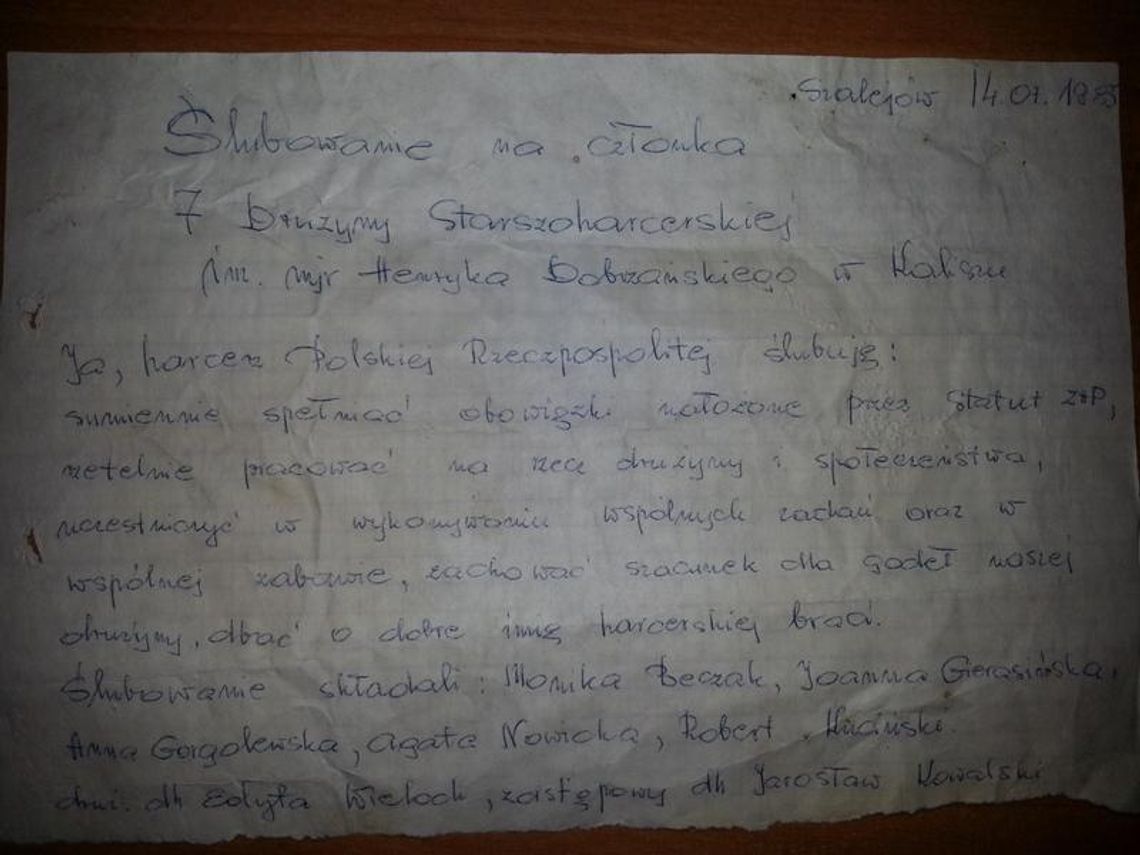 Szalejów 14.07.1985
Ślubowanie na członka
7 Drużyny Starszoharcerskiej
im. mjr Henryka Dobrzańskiego w Kaliszu
Ja, harcerz Polskiej Rzeczpospolitej ślubuję:
sumiennie spełniać obowiązki nałożone przez Statut ZHP,
rzetelnie pracować na rzecz drużyny i społeczeństwa,
uczestniczyć w wykonywaniu wspólnych zadań oraz w
wspólnej zabawie, zachować szacunek dla godeł naszej
drużyny, dbać o dobre imię harcerskiej braci.
Ślubowanie składali: Monika Beczak, Joanna Gierasińska,
Anna Gorgolewska, Agata Nowicka, Robert Kuciński.
dh Edyta Wieloch, zastępowy dh Jarosław Kowalski